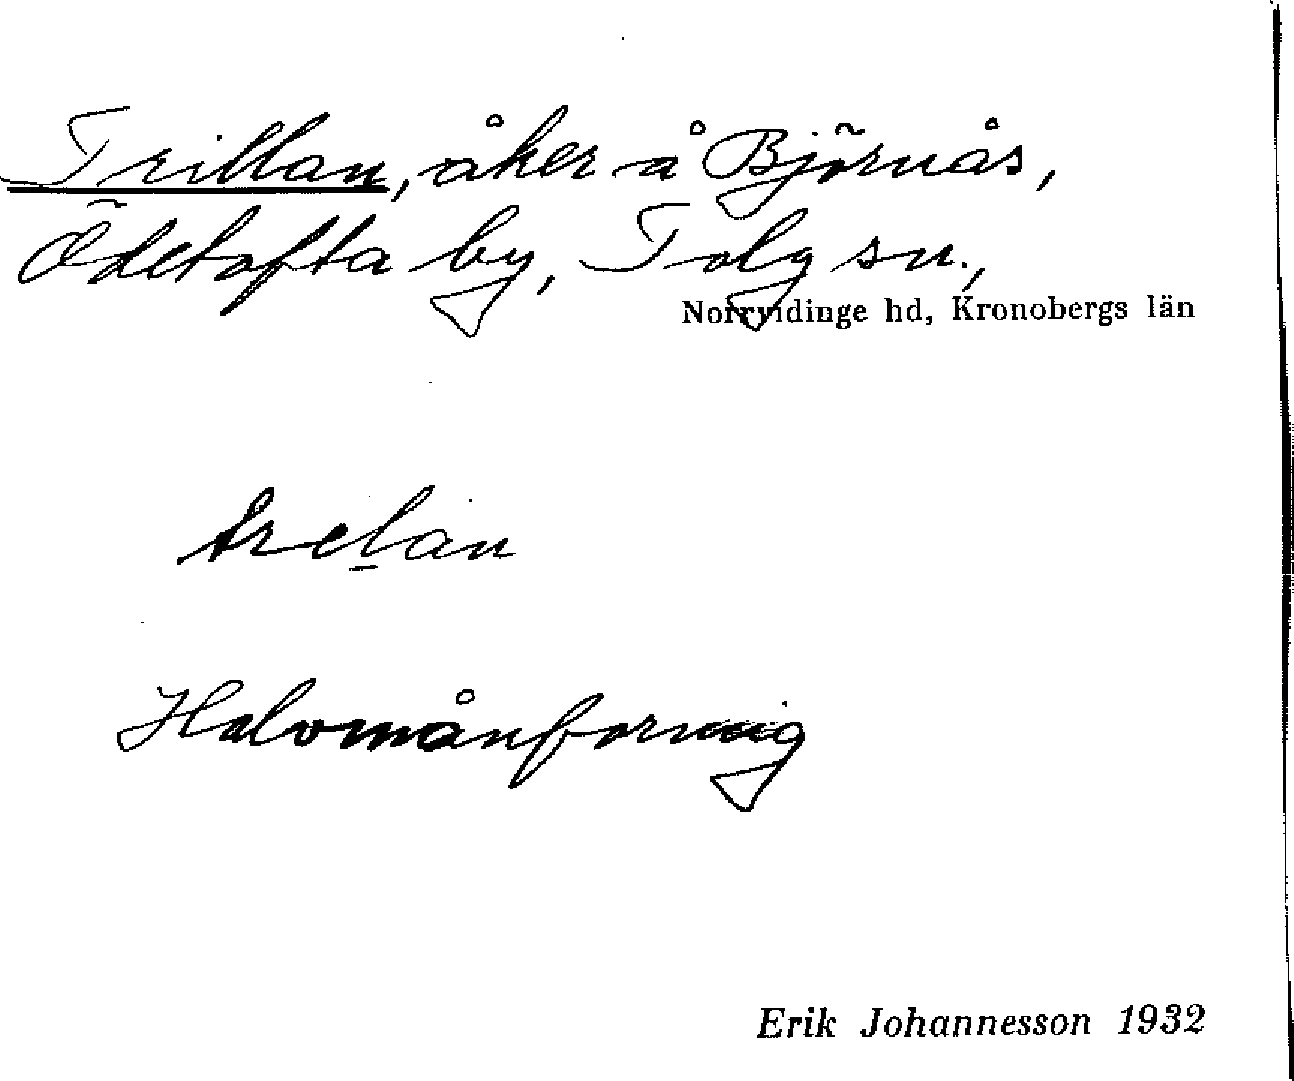 Trillan, åker å Björnås,
Ödetofta by, Tolg sn.,
Norrvidinge hd, Kronobergs län
trelan
Halvmånformig
Erik Johannesson 1932